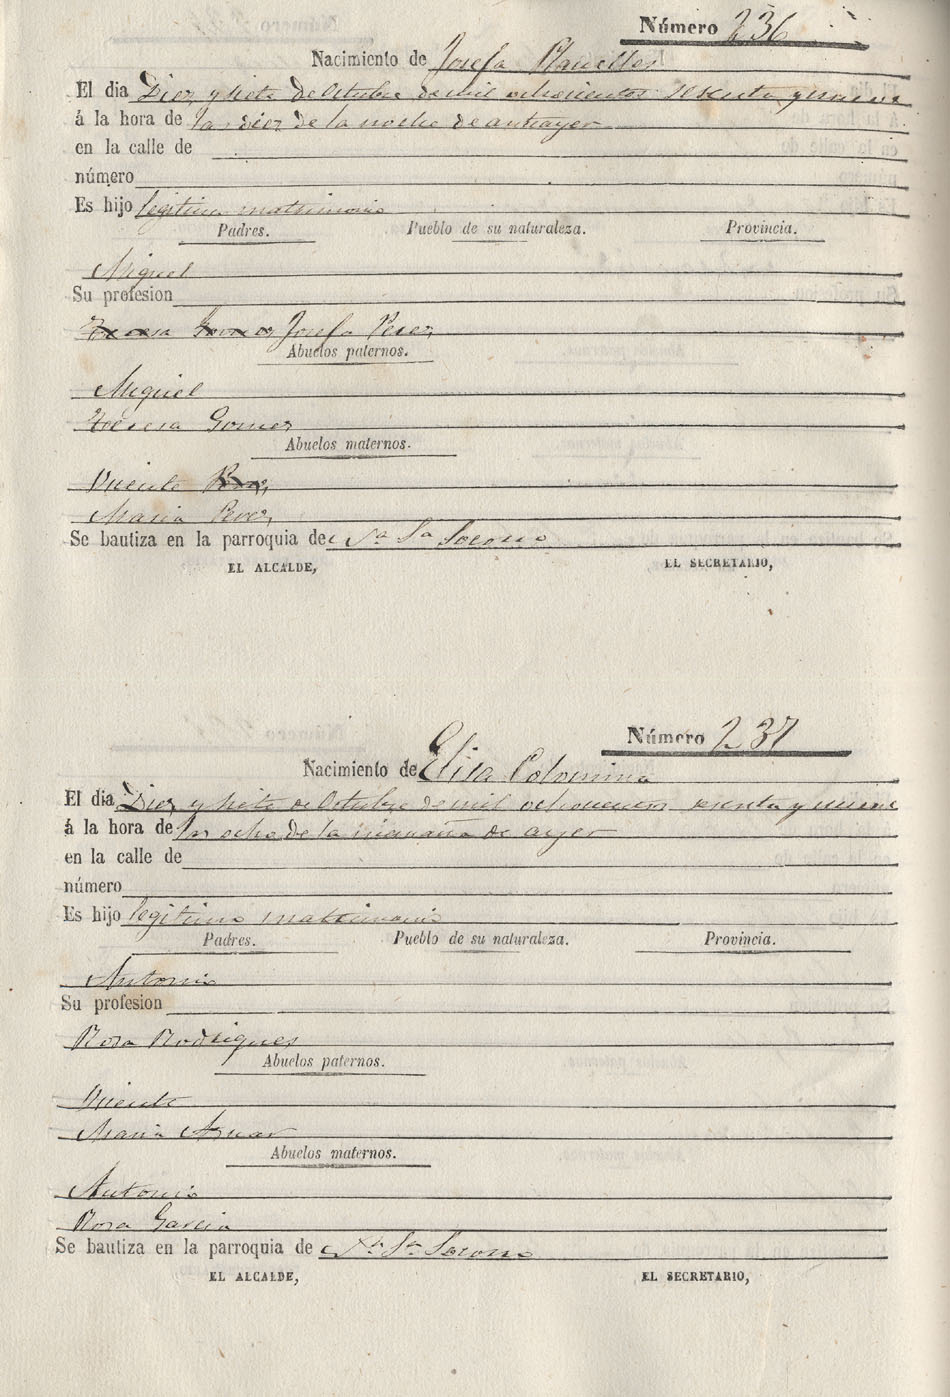 Número 236
Nacimiento de Josefa Planelles
El dia Diez y siete de Octubre de mil ochocientos sesenta y nueve
á la hora de las diez de la noche de antiayer
en la calle de
número
Es hijo legitimo matrimonio
Padres. Pueblo de su naturaleza. Provincia.
Miguel
Su profesion
Teresa Gomez Josefa Perez
Abuelos paternos.
Miguel
Teresa Gomez
Abuelos maternos.
Vicente Perez
Maria Perez
Se bautiza en la parroquia de Na. Sa. Socorro
EL ALCALDE, EL SECRETARIO,
Número 237
Nacimiento de Elisa Colomina
El dia Diez y siete de Octubre de mil ochocientos sesenta y nueve
á la hora de las ocho de la mañana de ayer
en la calle de
número
Es hijo legitimo matrimonio
Padres. Pueblo de su naturaleza. Provincia.
Antonio
Su profesion
Rosa Rodrigues
Abuelos paternos.
Vicente
Maria Aznar
Abuelos maternos.
Antonio
Rosa Garcia
Se bautiza en la parroquia de Na. Sa. Socorro
EL ALCALDE, EL SECRETARIO,